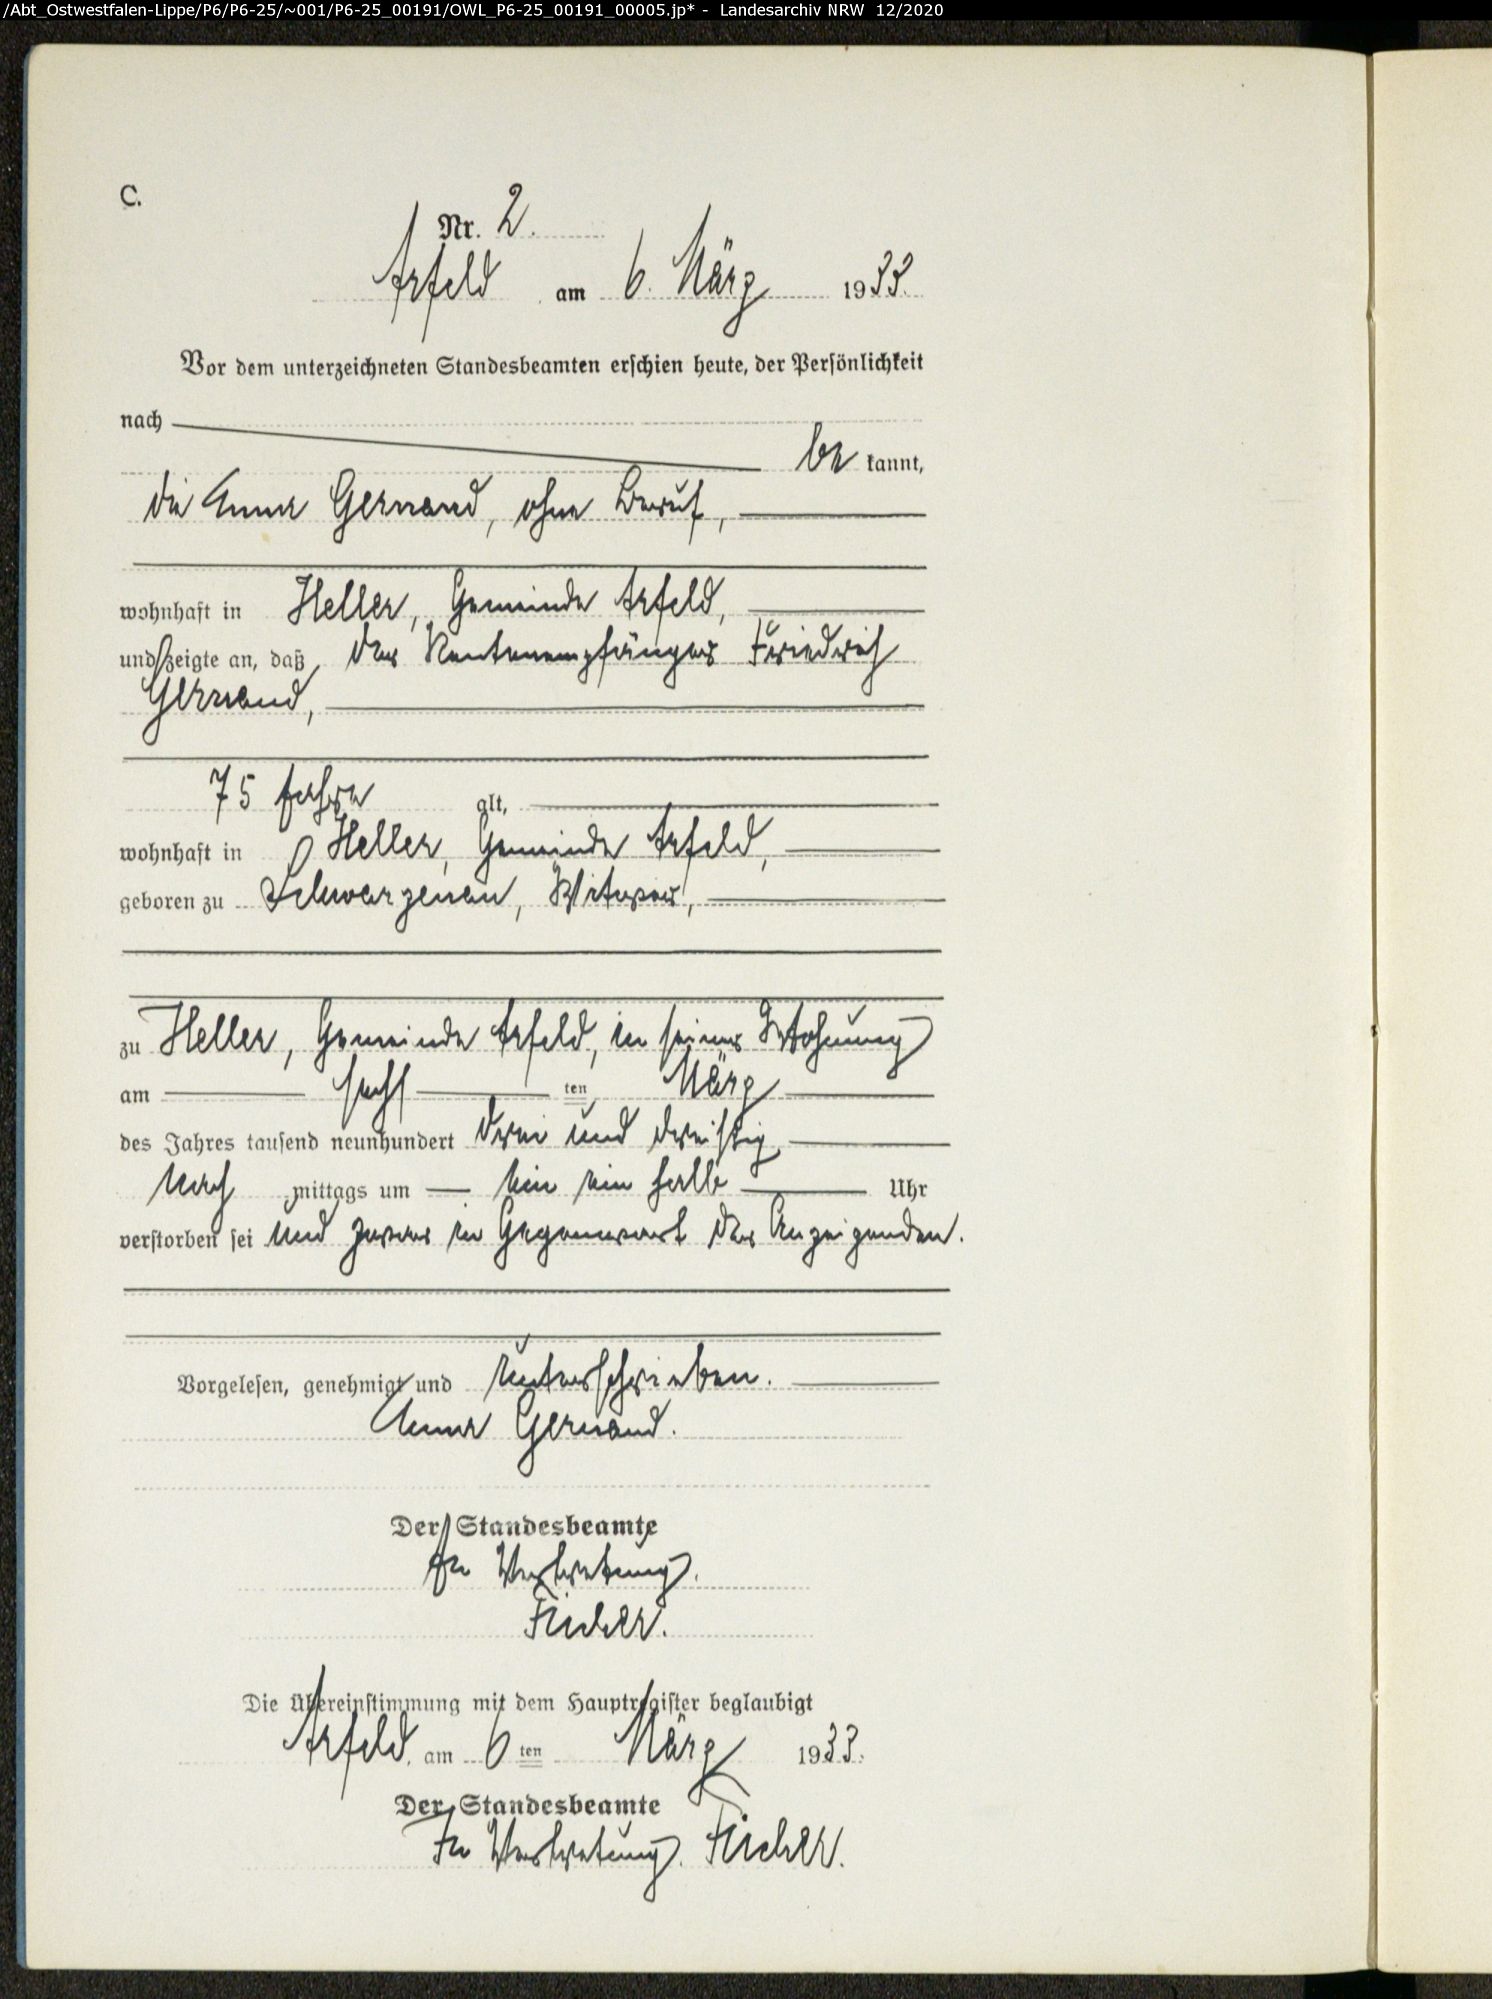 /Abt_Ostwestfalen-Lippe/P6/P6-25/~001/P6-25_00191/OWL_P6-25_00191_00005.jp* - Landesarchiv NRW 12/2020
C.
Nr. 2.
Arfeld am 6. März 1933.
Vor dem unterzeichneten Standesbeamten erschien heute, der Persönlichkeit
nach
be kannt,
die Anna Gernand, ohne Beruf,
wohnhaft in Heller, Gemeinde Arfeld,
und zeigte an, daß der Rentenempfänger Friedrich
Gernand,
75 Jahre alt,
wohnhaft in Heller, Gemeinde Arfeld,
geboren zu Schwarzenau, Witwer,
zu Heller, Gemeinde Arfeld, in seiner Wohnung
am sechs ten März
des Jahres tausend neunhundert drei und dreißig
nach mittags um ein ein halb Uhr
verstorben sei und zwar in Gegenwart der Anzeigenden.
Vorgelesen, genehmigt und unterschrieben.
Anna Gernand.
Der Standesbeamte
In Vertretung.
Die Übereinstimmung mit dem Hauptregister beglaubigt
Arfeld, am 6 ten März 1933.
Der Standesbeamte
In Vertretung.